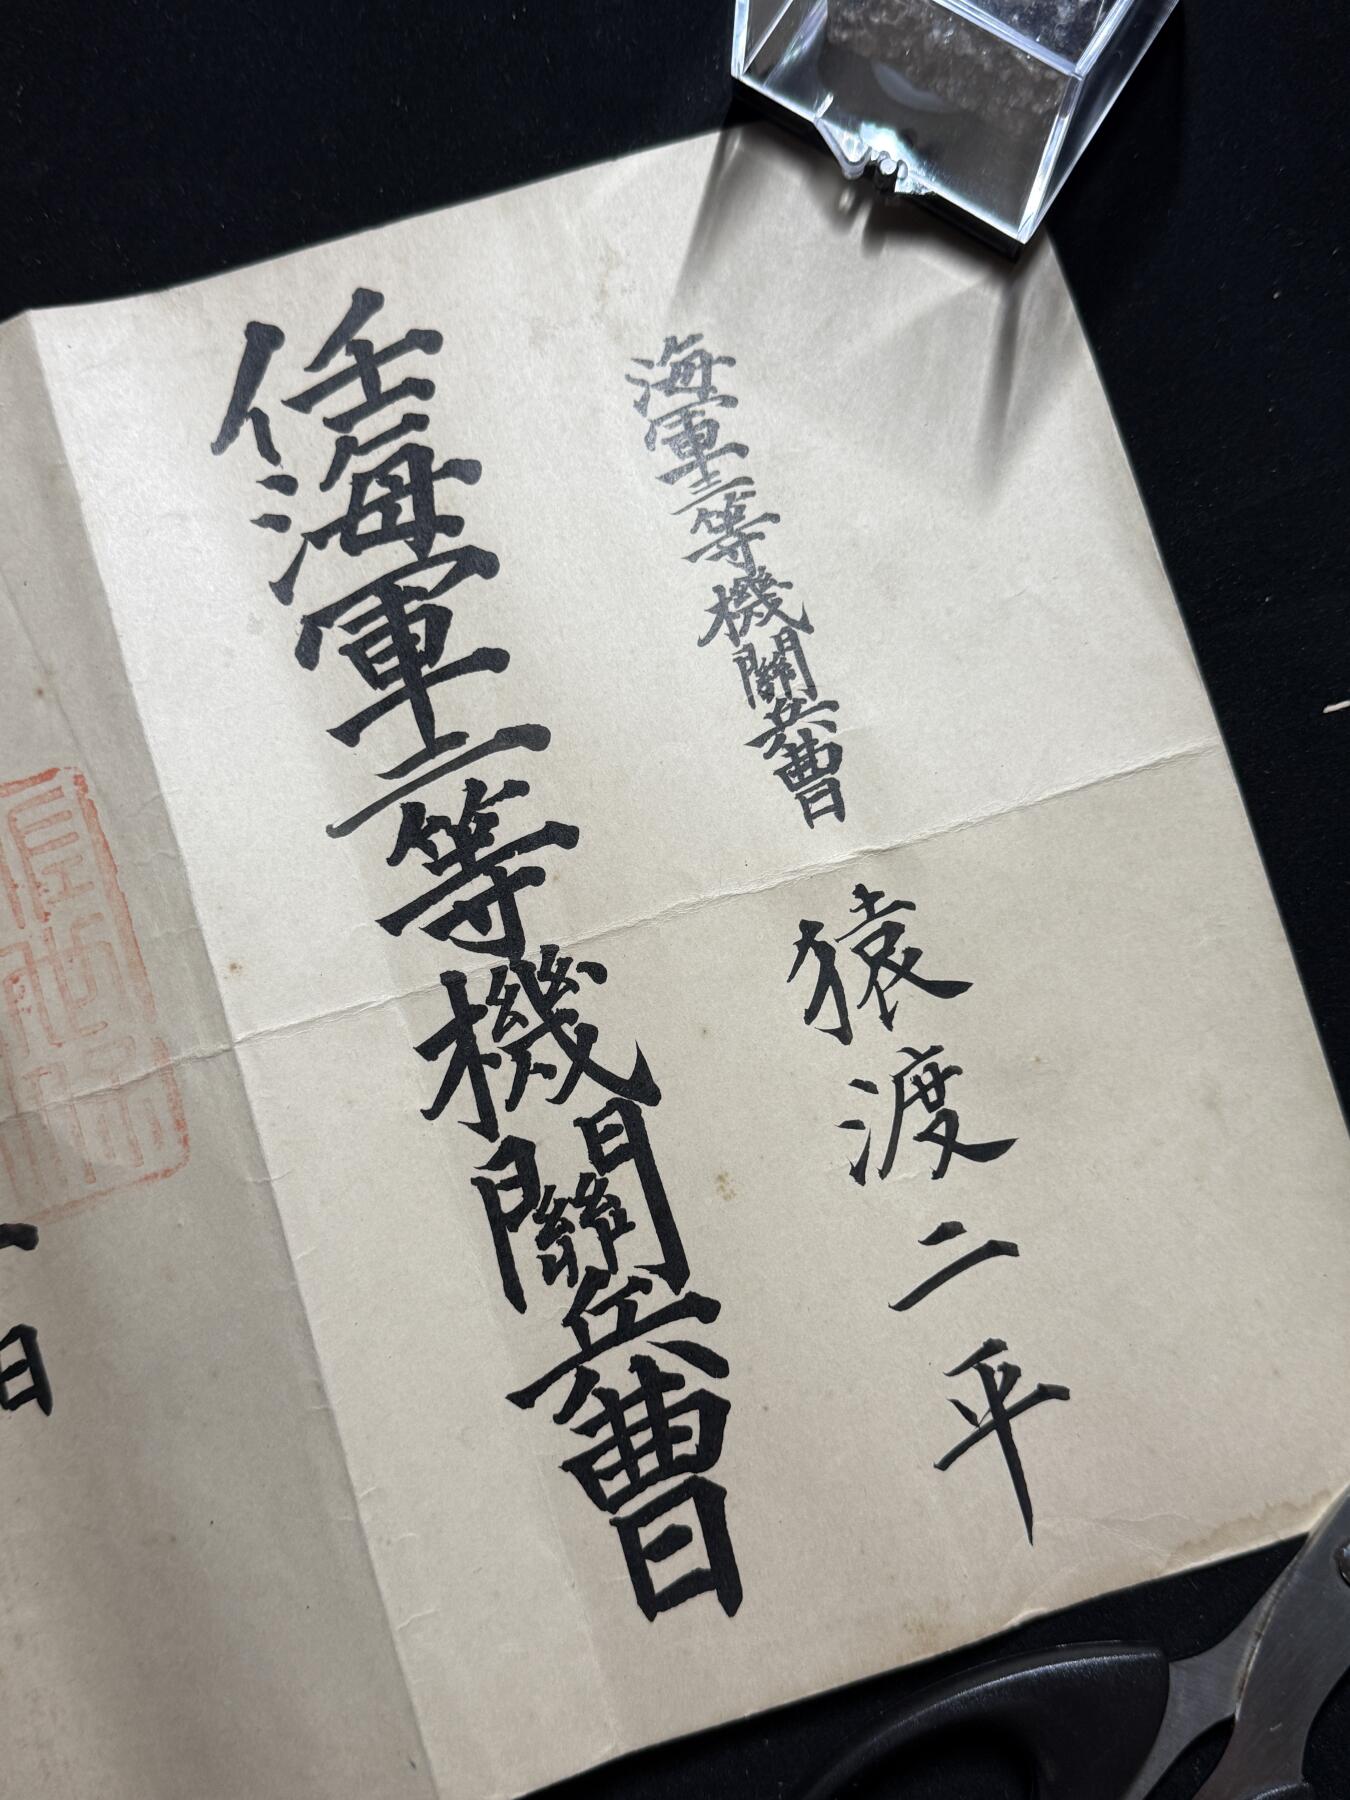 海軍三等機關兵曹 猿渡二平
任海軍二等機關兵曹
日